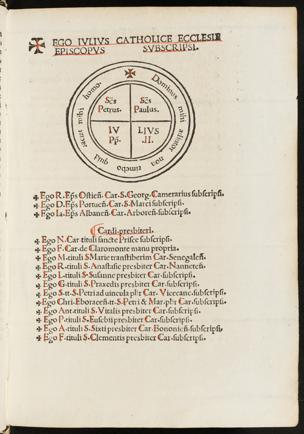 ✠ EGO IVLIVS CATHOLICE ECCLESIE
EPISCOPVS SVBSCRIPSI.
✠ Dominus mihi adiutor non timebo quid faciat mihi homo.
Scs Petrus.
Scs Paulus.
IV
LIVS
PP.
.II.
✠ Ego R. Eps Ostien. Car. S. Georg. Camerarius subscripsi.
✠ Ego D. Eps Portuen. Car. S. Marci subscripsi.
✠ Ego Ia. Eps Albanen. Car. Arboren. subscripsi.
Cardi. presbiteri.
✠ Ego N. Car. tituli sancte Prisce subscripsi.
✠ Ego F. Car. de Claromonte manu propria.
✠ Ego M. tituli S. Marie transtiberim Car. Senogallen.
✠ Ego R. tituli S. Anastasie presbiter Car. Nanneten.
✠ Ego L. tituli S. presbiter Car. subscripsi.
✠ Ego G. tituli S. Praxedis presbiter Car. subscripsi.
✠ Ego S. tt. S. Petri ad vincula pbr Car. Vicecanc. subscripsi.
✠ Ego Chri. Eboracen. tt. S. Petri & Mar. pbr Car. subscripsi.
✠ Ego Ant. tituli S. Vitalis presbiter Car. subscripsi.
✠ Ego P. tituli S. Eusebii presbiter Car. subscripsi.
✠ Ego A. tituli S. Sixti presbiter Car. Bononien. subscripsi.
✠ Ego F. tituli S. Clementis presbiter Car. subscripsi.